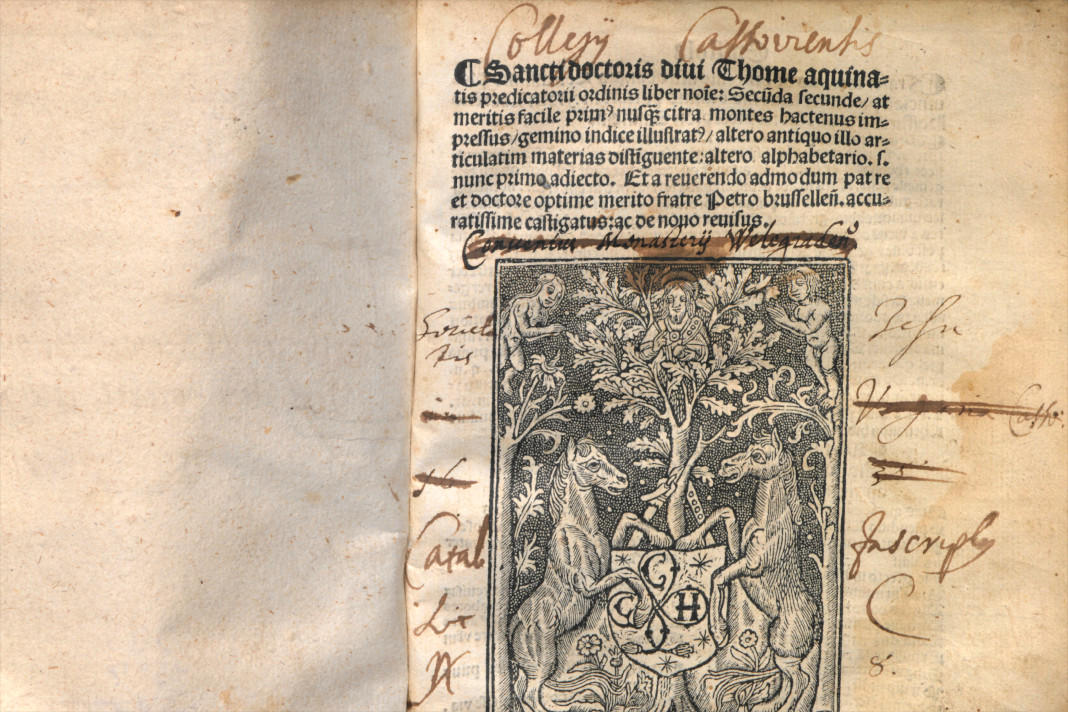 Collegij Castoviensis
Sancti doctoris diui Thome aquina-
tis predicatorii ordinis liber noīe: Secūda secunde/ at
meritis facile primꝰ nusqꝫ citra montes hactenus im-
pressus/gemino indice illustratꝰ/ altero antiquo illo ar-
ticulatim materias distīguente: altero alphabetario. s.
nunc primo adiecto. Et a reuerendo admodum patre
et doctore optime merito fratre Petro brussellen̄. accu-
ratissime castigatus: ac de nouo reuisus.
Conuentus Monasterij Welegraden
Societa
tis
Jesu
Catal
Inscriptus
C
C C H
8.